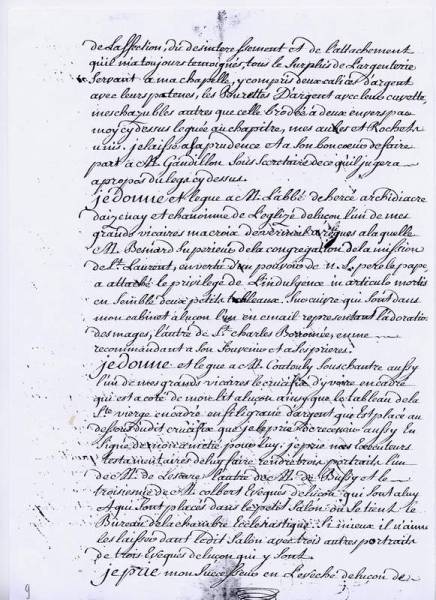 de Laffection, du desinteressement et de Lattachement
quil ma toujours temoignés, tous le Surplus de Largenterie
Servant a ma chapelle, y compris deux calices d'argent
avec leurs patenes, les Burettes Dargent avec leur cuvette,
mes chazubles autres que celle brodée a deux envers par
moy cydessus leguée au chapitre, mes aubes et Rochets
unis. je laisse a la prudence et a son bon coeur de faire
part a Mr. Gaudillon Sous Secretaire de ce qu'il jugera
apropos du legs cydessus.
je donne et legue a Mr. L'abbé de hercé archidiacre
daizenay et chanoinne de Leglize de luçon l'un de mes
grands vicaires ma croix a laquelle
Mr. Besnard Superieur de la congregation de la mission
de St. Laurent, en vertu d'un pouvoir de n. S. pere le pape,
a attaché le privilege de Lindulgence in articulo mortis
en Semble deux petits tableaux Sur cuivre qui Sont dans
mon cabinet a luçon l'un en email representant l'adoration
des mages, l'autre de St. charles Borromée, en me
recommandant a Son Souvenir et a Ses prieres.
je donne et legue a Mr. Coutouly Souschantre aussy
l'un de mes grands vicaires le crucifix d'yvoire encadré
qui est a coté de mon lit a luçon ainsy que le tableau de la
Ste vierge encadré en filigranne d'argent qui Est placé au
dessous dudit crucifix que je le prie de recevoir aussy En
Signe de mon amitié pour luy. je prie nos Executeurs
testamentaires de luy faire rendre trois portraits l'un
de Mr. de Lescure l'autre de Mr. de Bussy et le
troisieme de Mr. colbert Evêques de luçon qui Sont a luy
Et qui Sont placés dans le petit Salon ou Se tient le
Bureau de la chambre Ecclesiastique. Si mieux il n'aime
les laisser dans Ledit Salon avec trois autres portraits
de trois Evêques de luçon qui y Sont.
je prie mon Successeur en L'eveché de luçon de
9